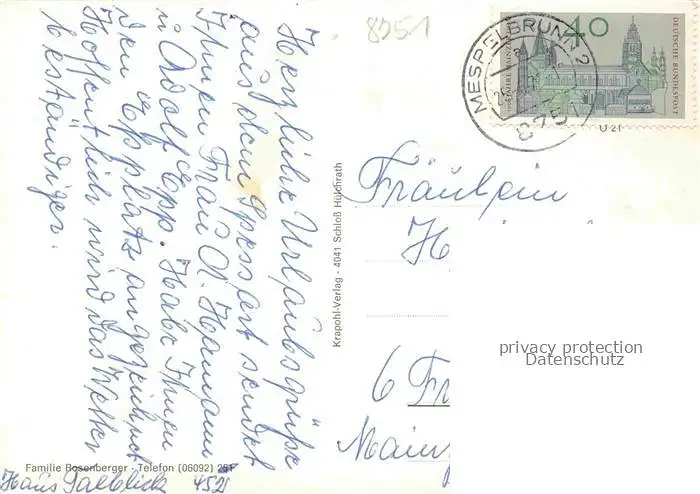 Herzliche Urlaubsgrüße
aus dem Spessart sendet
Ihnen Frau A. Hermann
u. Adolf Epp. Habe Ihnen
den Eßplatz angezeichnet
Hoffentlich wird das Wetter
beständiger.
Familie Rosenberger - Telefon (06092) 251
Haus Talblick 452
Krapohl-Verlag - 4041 Schloß Hülchrath
8751
40
DEUTSCHE BUNDESPOST
MESPELBRUNN 2
875
U 21
Fräulein
H
6 Fr
Main
privacy protection
Datenschutz